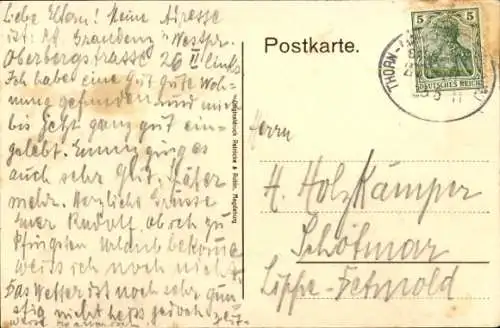 Liebe Eltern! Meine Adresse
ist: Graudenz Westpr.
Oberbergstrasse 26 II links
Ich habe eine gute Woh-
nung gefunden und mich
bis jetzt ganz gut ein-
gelebt. ging es
auch sehr gut. Später
mehr. Herzliche Grüsse
Euer Rudolf, ob ich zu
Pfingsten Urlaub bekomme
weiss ich noch nicht.
Das Wetter ist noch sehr gün-
stig nicht heiss jedoch zeit-
Postkarte.
5 5
DEUTSCHES REICH
THORN
Herrn
H. Holzkämper
Schötmar
Lippe-Detmold